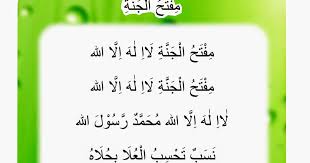 مِفْتَحُ الْجَنَّةِ
مِفْتَحُ الْجَنَّةِ لَاإِ لَهَ اِلَّا الله
مِفْتَحُ الْجَنَّةِ لَاإِ لَهَ اِلَّا الله
لَاإِ لَهَ اِلَّا الله مُحَمَّدٌ رَّسُوْلَ الله
نَسَبٌ تَحْسِبُ الْعُلَا بِحُلَاهُ